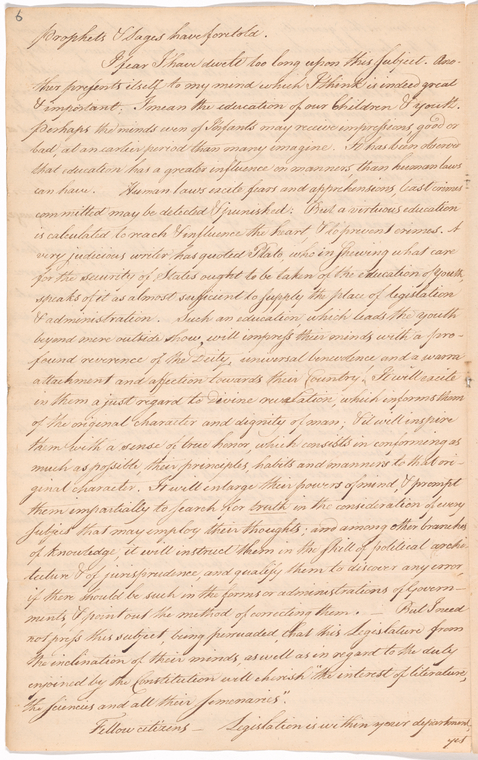 6
Prophets & Sages have foretold.
I fear I have dwelt too long upon this subject. Ano-
ther presents itself to my mind which I think is indeed great
& important; I mean the education of our Children & youth.
Perhaps the minds even of Infants may receive impressions good or
bad, at an earlier period than many imagine. It has been observd
that education has a greater influence on manners, than human laws
can have. Human laws excite fears and apprehensions, least crimes
committed may be detected & punished: But a virtuous education
is calculated to reach & influence the heart & to prevent crimes. A
very judicious writer has quoted Plato, who in shewing what care
for the security of States ought to be taken of the education of youth,
speaks of it as almost sufficient to supply the place of legislation
& administration. Such an education, which leads the youth
beyond mere outside show, will impress their minds with a pro-
found reverence of the Deity, universal benevolence and a warm
attachment and affection towards their Country. It will excite
in them a just regard to divine revelation, which informs them
of the original character and dignity of man; & it will inspire
them with a sense of true honor, which consists in conforming as
much as possible, their principles, habits and manners to that ori-
ginal character. It will enlarge their powers of mind, & prompt
them impartially to search for truth in the consideration of every
subject that may employ their thoughts; and among other branches
of knowledge, it will instruct them in the skill of political archi-
tecture & of jurisprudence, and qualify them to discover any error,
if there should be such in the forms or administrations of Govern-
ments, & point out the method of correcting them. — But I need
not press this subject, being persuaded, that this Legislature from
the inclination of their minds, as well as in regard to the duty
enjoined by the Constitution will cherish "the interest of literature,
the sciences and all their seminaries".
Fellow citizens — Legislation is within your department,
yet